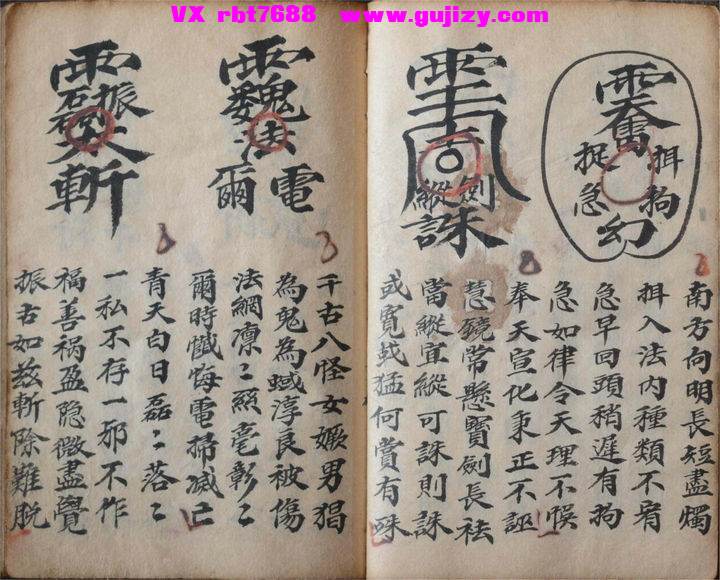 VX rbt7688 www.gujizy.com
捉 拰 狗 急 幻
南方向明長短盡燭
拰入法内種類不肖
急早回頭稍遲有狗
急如律令天理不悞
奉天宣化秉正不誣
縱 劍 誅
慧鏡常懸寶劍長祛
當縱宜縱可誅則誅
或寬或猛何賞有殊
魏 法 爾 電
千古八怪女嫩男猖
為鬼為蜮淳良被傷
法網凛㆓照毫彰㆓
爾時懺悔電掃滅亡
振 斬
青天白日磊㆓落㆓
一私不存一邪不作
福善禍盈隐微盡覺
振古如兹斬除難脱